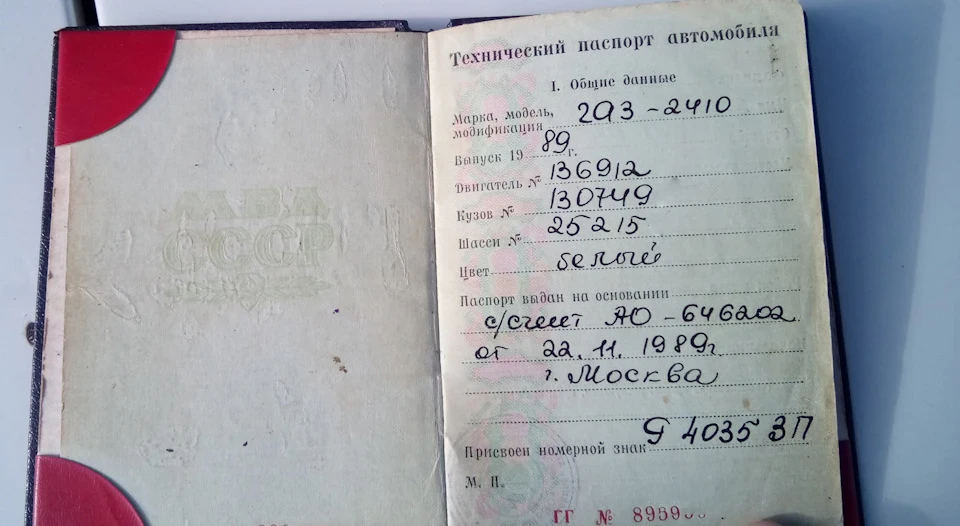 СССР
Технический паспорт автомобиля
I. Общие данные
Марка, модель,
модификация ГАЗ-2410
Выпуск 19 89 г.
Двигатель № 136912
Кузов № 130749
Шасси № 25215
Цвет белый
Паспорт выдан на основании
с/счет АО-646202
от 22.11.1989г
г. Москва
Присвоен номерной знак 4035 ЗП
М. П.
ГГ №